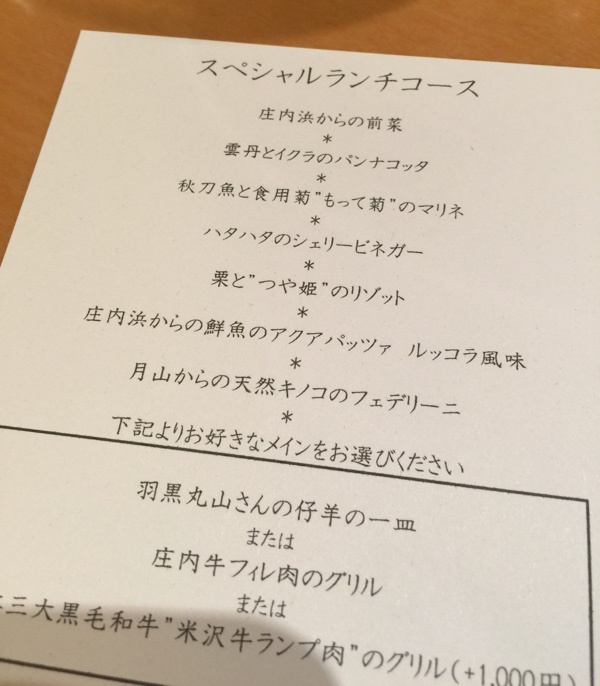 スペシャルランチコース
庄内浜からの前菜
*
雲丹とイクラのパンナコッタ
*
秋刀魚と食用菊"もって菊"のマリネ
*
ハタハタのシェリービネガー
*
栗と"つや姫"のリゾット
*
庄内浜からの鮮魚のアクアパッツァ ルッコラ風味
*
月山からの天然キノコのフェデリーニ
*
下記よりお好きなメインをお選びください
羽黒丸山さんの仔羊の一皿
または
庄内牛フィレ肉のグリル
または
三大黒毛和牛"米沢牛ランプ肉"のグリル(+1,000円)